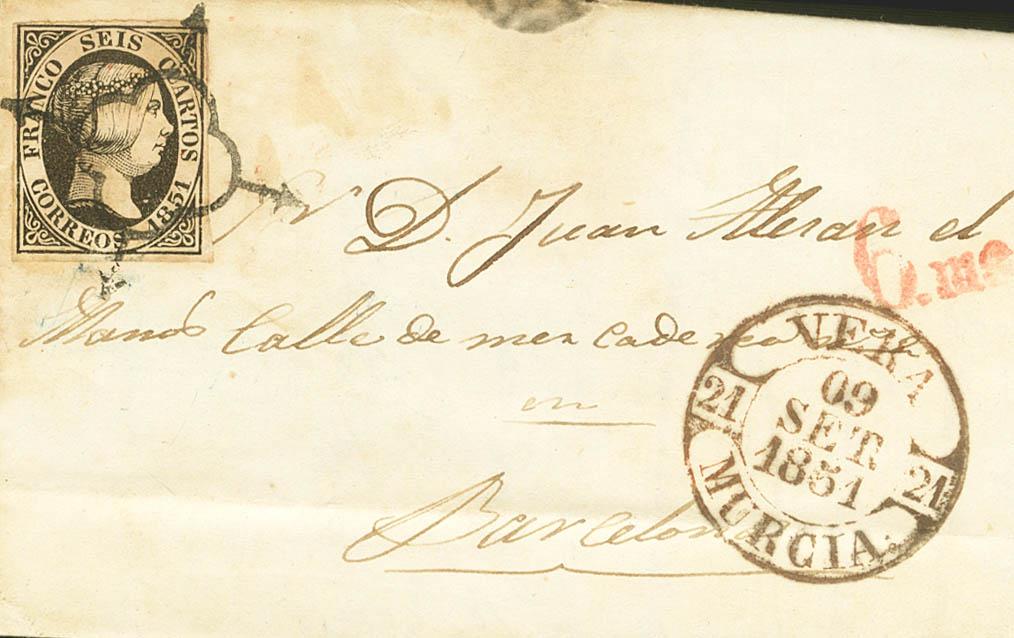 FRANCO SEIS CUARTOS
CORREOS 1851
Sr D. Juan el
6.
Calle de mercaderes
en
Barcelona
VERA
09
SET.
1851
21 21
MURCIA.